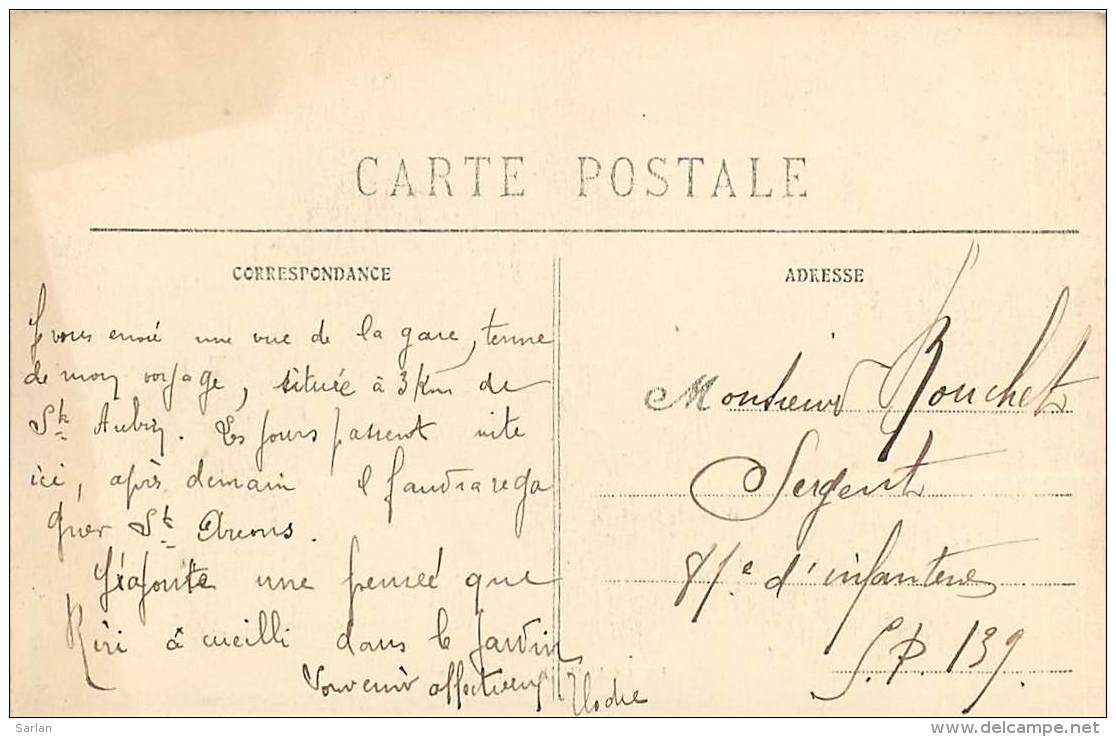 CARTE POSTALE
CORRESPONDANCE
ADRESSE
J vous envoie une vue de la gare, terme
de mon voyage, située à 3 km de
St Aubin. Les jours passent vite
ici, après demain il faudra rega
gner St
J'ajoute une pensée que
Riri a cueilli dans le jardin
Souvenir affectueux
Monsieur Bouchet
Sergent
81e d'infanterie
S.P. 139.
Sarlan
www.delcampe.net